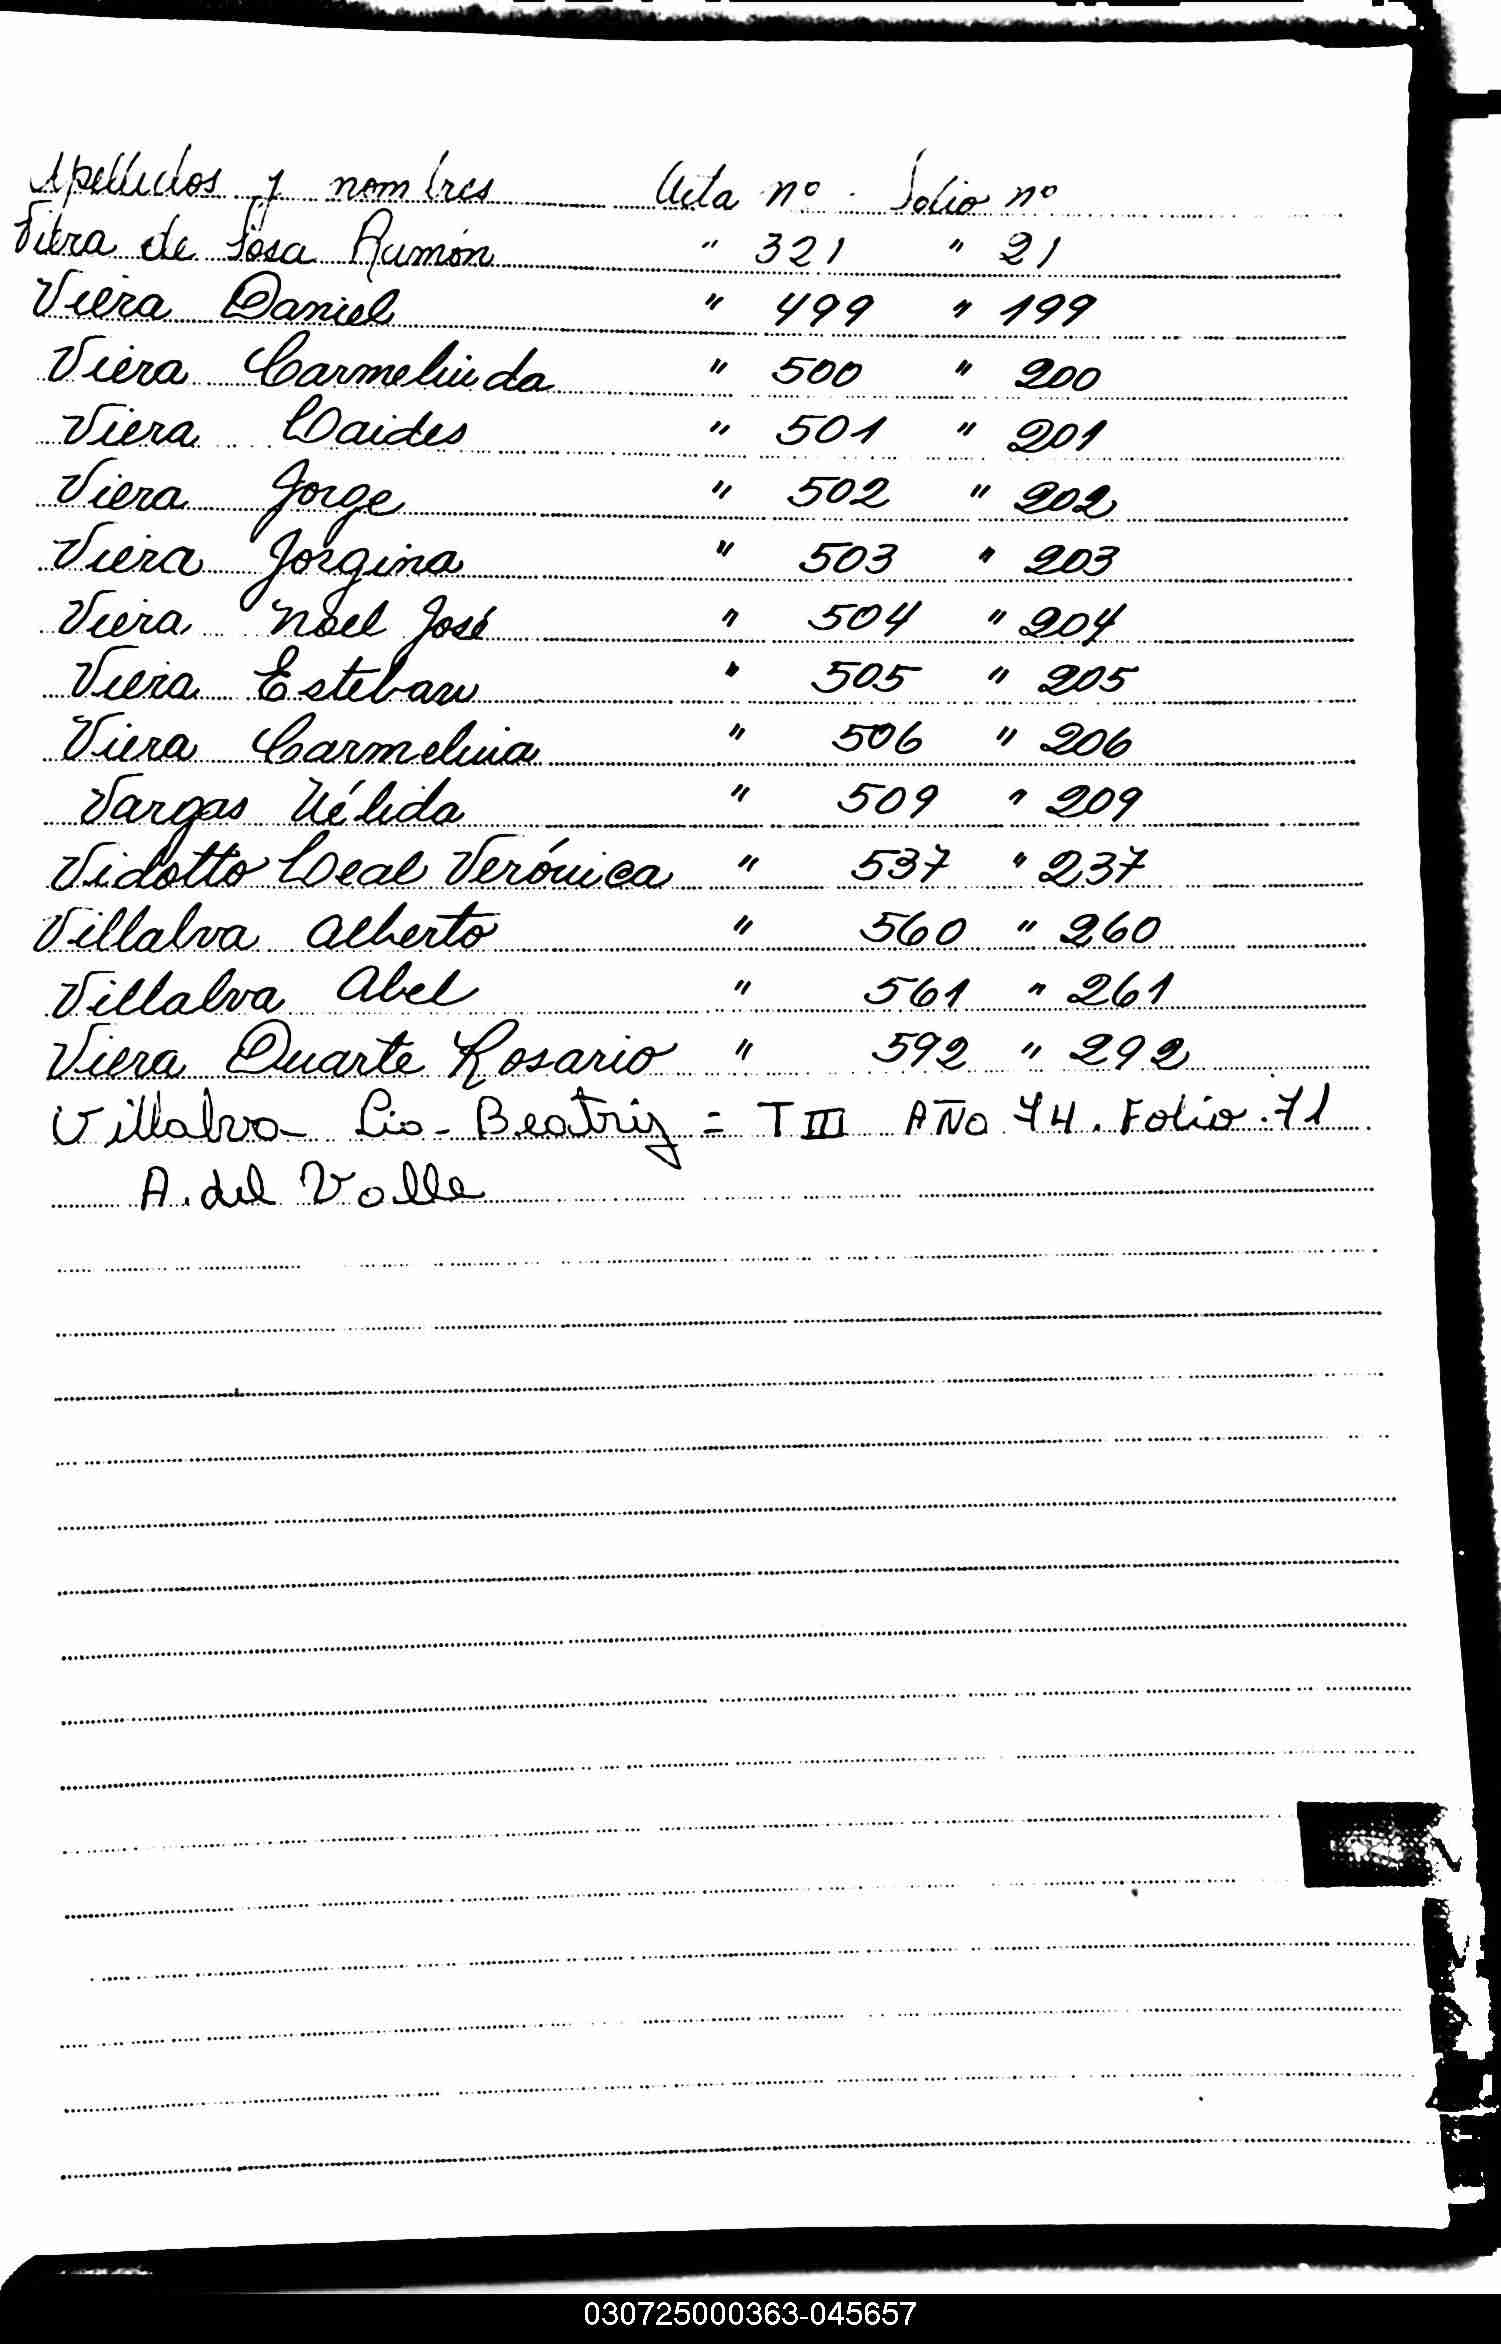 Apellidos y nombres Acta nº. Folio nº
Viera de Sosa Ramón " 321 " 21
Viera Daniel " 499 " 199
Viera Carmelinda " 500 " 200
Viera Laides " 501 " 201
Viera Jorge " 502 " 202
Viera Jorgina " 503 " 203
Viera Noel José " 504 " 204
Viera Esteban " 505 " 205
Viera Carmelina " 506 " 206
Vargas Nélida " 509 " 209
Vidotto Leal Verónica " 537 " 237
Villalva Alberto " 560 " 260
Villalva Abel " 561 " 261
Viera Duarte Rosario " 592 " 292
Villalva - Beatriz = T III AÑo 74. Folio. 71
A. del Valle
030725000363-045657